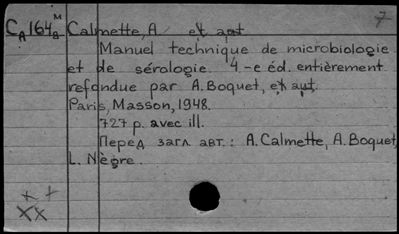 7
C_A 164_8 M Calmette, A et aut
Manuel technique de microbiologie
et de sérologie. 4.-e éd. entièrement
refondue par A. Boquet, et aut.
Paris, Masson, 1948.
727 p. avec ill.
Перед загл. авт.: A. Calmette, A. Boquet,
L. Nègre.
++
XX